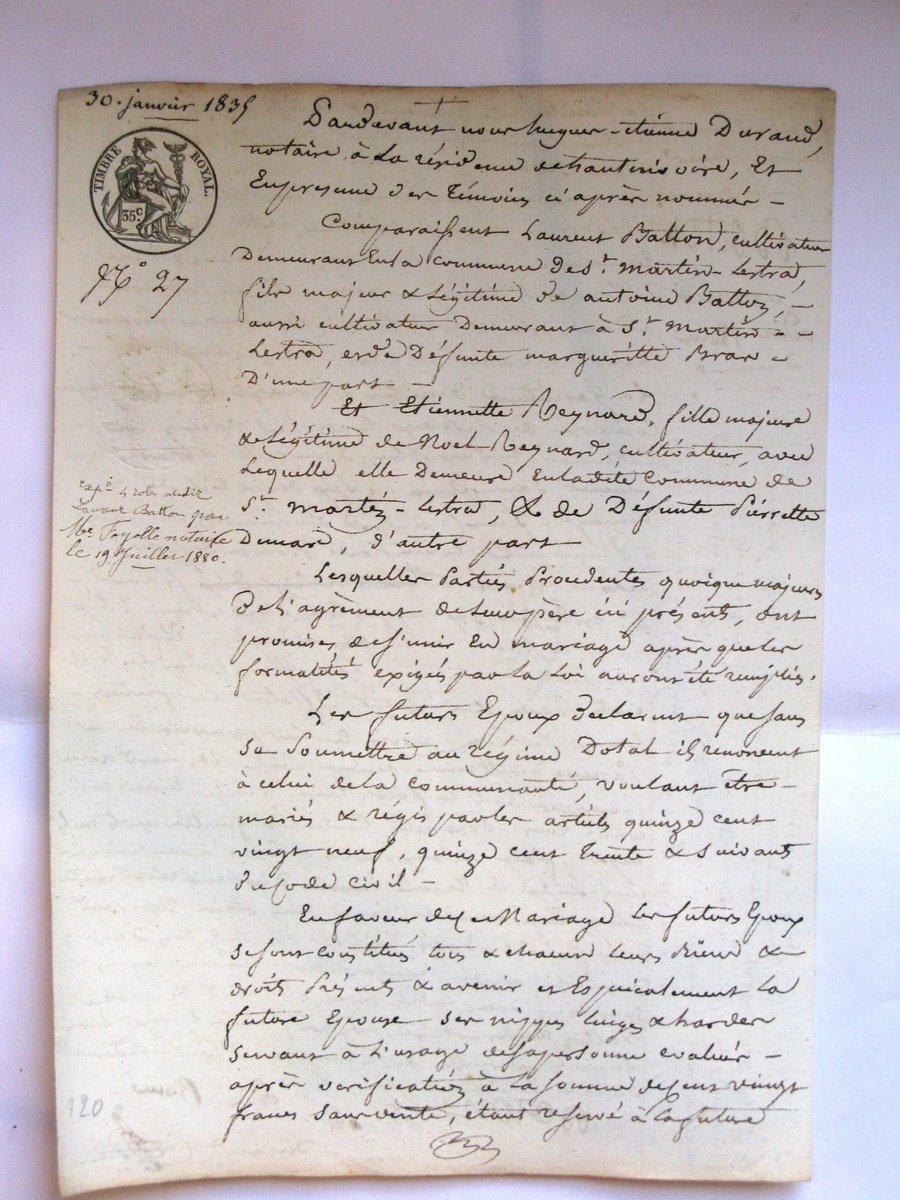 30. janvier 1835
TIMBRE ROYAL.
35c.
N° 27
Pardevant nous hugues-étienne Durand,
notaire à la résidence de hauterivoire, Et
En présence des témoins ci après nommés -
Comparaissent Laurent Batton, cultivateur
Demeurant En la commune de St. martin-Lestra,
fils majeur & légitime de antoine Batton, -
aussi cultivateur Demeurant à St. Martin - -
Lestra, et de Défunte margueritte Bras -
D'une part -
Et Etiennette Reynard, fille majeure
& légitime de Noel Reynard, cultivateur, avec
Lequelle elle Demeure En ladite Commune de
St. martin-Lestra, & de Défunte Pierrette
Dumard, d'autre part
expé 4 roles audit
Laurent Batton par
Me. Fayolle notaire
le 19 Juillet 1880.
Lesquelles Parties Procedentes quoique majeurs
De L'agrément de leur père ici présents, ont
promises de s'unir En mariage après que les
formalités exigés par la Loi auront été remplies.
Les futurs Epoux Declarent que sans
se Soumettre au régime Dotal ils renoncent
à celui de la communauté, voulant être -
mariés & régis par les articles quinze cent
vingt neuf, quinze cent trente & suivants
du code civil -
En faveur de ce Mariage les futurs Epoux
se sont constitués tous & chacun leurs Biens &
droits Présents & avenir et Espécialement La
future Epouse ses nippes linges & hardes
servant à L'usage de sa personne evalués -
après vérification à la somme de cent vingt
francs sans vente, étant reservé à la future
120